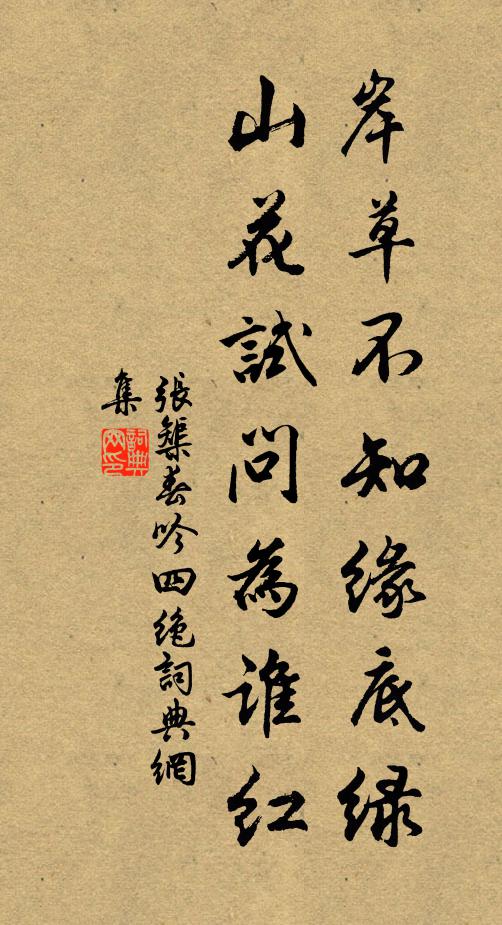 岸草不知緣底綠
山花試問為誰紅
張榘春吟四絕詞典網
集
詞典網印